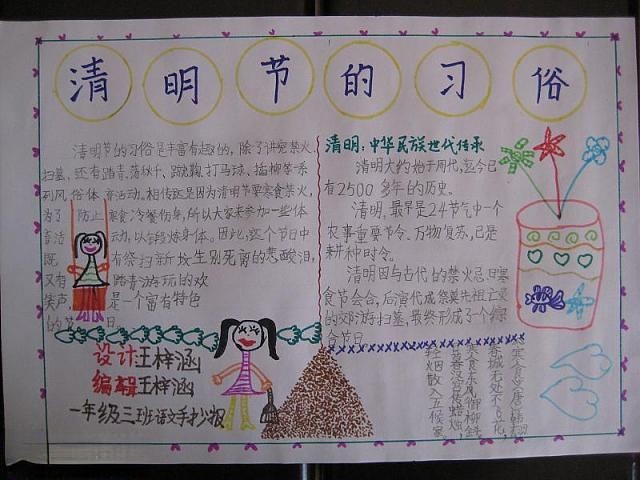 清明节的习俗
清明节的习俗是丰富有趣的，除了讲究禁火
扫墓，还有踏青、荡秋千、蹴鞠、打马球、插柳等系
列风俗体育活动。相传这是因为清明节要寒食禁火，
为了防止寒食冷餐伤身，所以大家来参加一些体
育活动，以锻炼身体。因此，这个节日中
既有祭扫新坟生别死离的悲酸泪，
又有踏青游玩的欢
笑声，是一个富有特色
的节日。
设计：王梓涵
编辑：王梓涵
一年级三班语文手抄报
清明：中华民族世代传承
清明大约始于周代，迄今已
有2500多年的历史。
清明，最早是24节气中一个
农事重要节令、万物复苏，已是
耕种时令。
清明因与古代的禁火忌日寒
食节会合，后演代成祭奠先祖上坟
的郊游扫墓，最终形成了个综
合节日
寒食 唐 韩翃
春城无处不飞花，
寒食东风御柳斜
日暮汉宫传蜡烛，
轻烟散入五候家